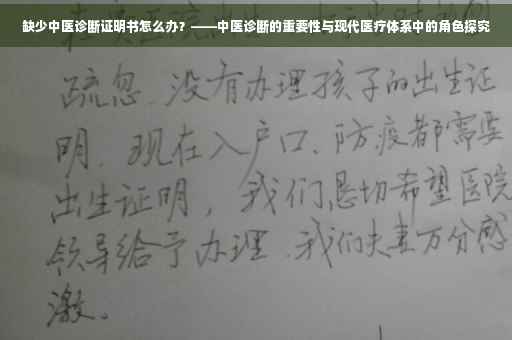 缺少中医诊断证明书怎么办？——中医诊断的重要性与现代医疗体系中的角色探究
疏忽、没有办理孩子的出生证
明、现在入户口、防疫都需要
出生证明，我们恳切希望医院
领导给予办理、我们夫妻万分感
激。